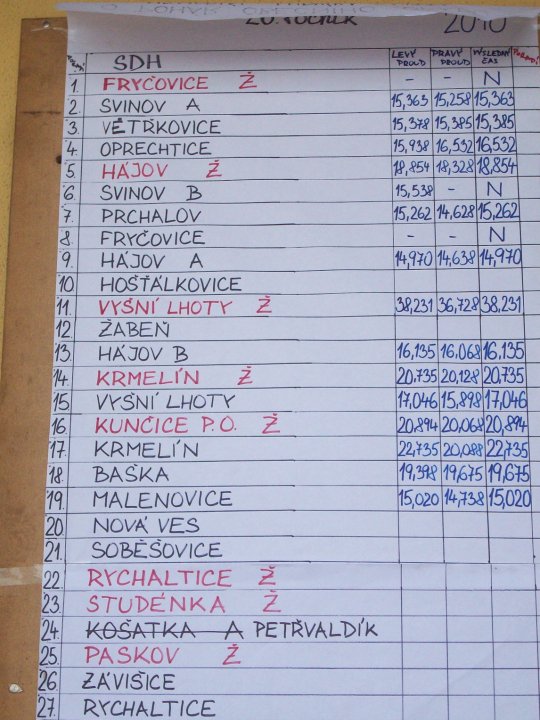 20. ročník 2010
SDH LEVÝ PROUD PRAVÝ PROUD VÝSLEDNÝ ČAS
1. FRYČOVICE Ž - - N
2. SVINOV A 15,363 15,258 15,363
3. VĚTŘKOVICE 15,378 15,385 15,385
4. OPRECHTICE 15,938 16,532 16,532
5. HÁJOV Ž 18,854 18,328 18,854
6. SVINOV B 15,538 - N
7. PRCHALOV 15,262 14,628 15,262
8. FRYČOVICE - - N
9. HÁJOV A 14,970 14,638 14,970
10. HOŠŤÁLKOVICE
11. VYŠNÍ LHOTY Ž 38,231 36,728 38,231
12. ŽABEŇ
13. HÁJOV B 16,135 16,068 16,135
14. KRMELÍN Ž 20,735 20,128 20,735
15. VYŠNÍ LHOTY 17,046 15,898 17,046
16. KUNČICE P.O. Ž 20,894 20,068 20,894
17. KRMELÍN 22,735 20,088 22,735
18. BAŠKA 19,398 19,675 19,675
19. MALENOVICE 15,020 14,738 15,020
20. NOVÁ VES
21. SOBĚŠOVICE
22. RYCHALTICE Ž
23. STUDÉNKA Ž
24. KOŠATKA A PETŘVALDÍK
25. PASKOV Ž
26. ZÁVIŠICE
27. RYCHALTICE